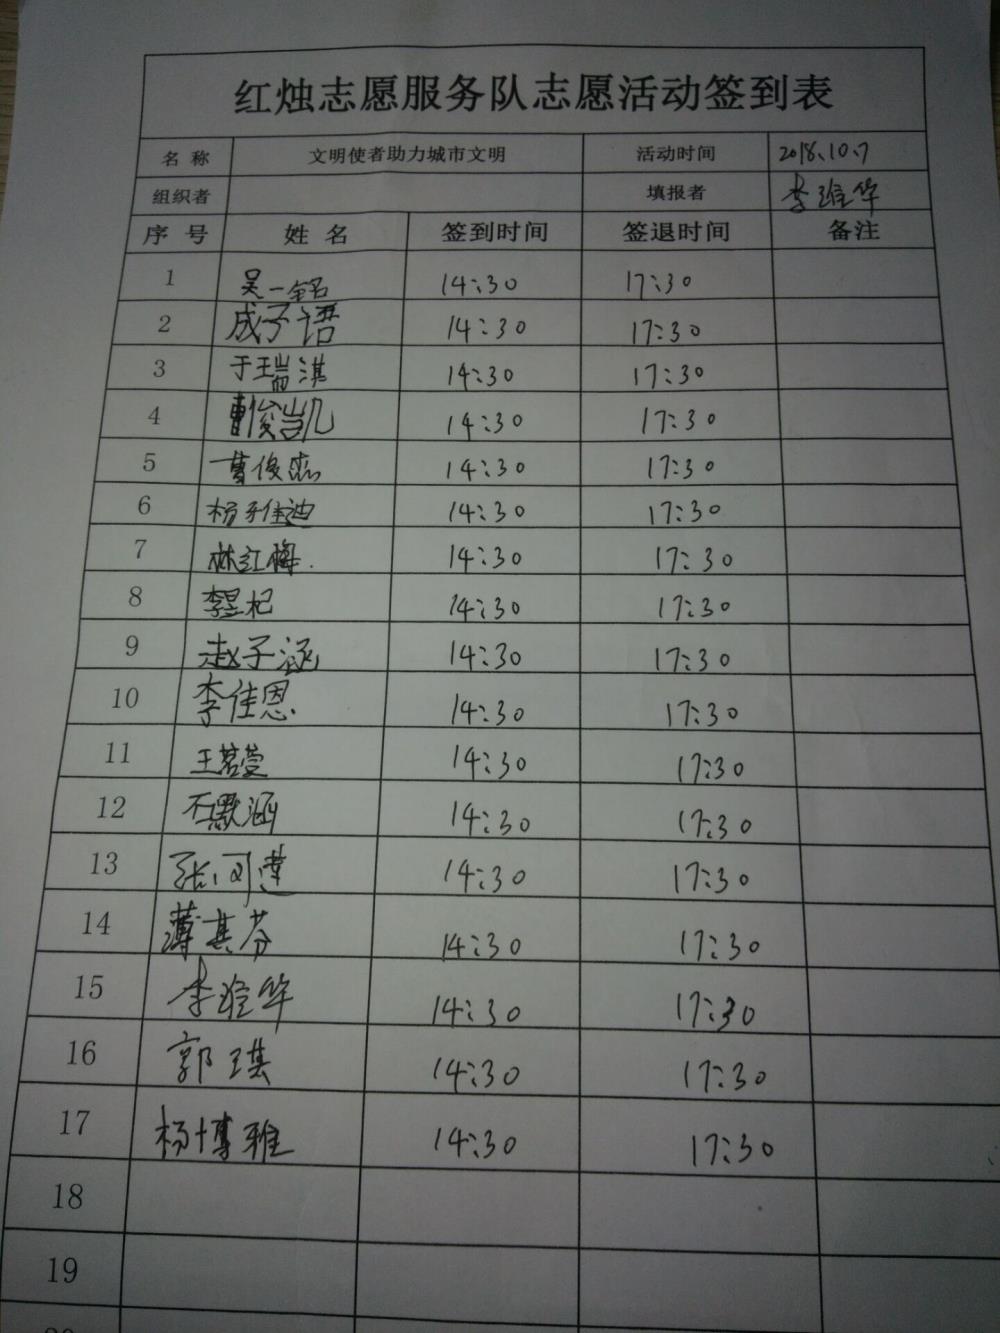 红烛志愿服务队志愿活动签到表
名 称 文明使者助力城市文明 活动时间 2018.10.7
组织者 填报者 李维华
序 号 姓 名 签到时间 签退时间 备注
1 吴一铭 14:30 17:30
2 成子语 14:30 17:30
3 于瑞淇 14:30 17:30
4 曹俊凯 14:30 17:30
5 曹俊杰 14:30 17:30
6 杨雅迪 14:30 17:30
7 林红梅. 14:30 17:30
8 李昱杞 14:30 17:30
9 赵子涵 14:30 17:30
10 李佳恩 14:30 17:30
11 王茗萱 14:30 17:30
12 默涵 14:30 17:30
13 张可 14:30 17:30
14 薄其芬 14:30 17:30
15 李维华 14:30 17:30
16 郭琪 14:30 17:30
17 杨博雅 14:30 17:30
18
19